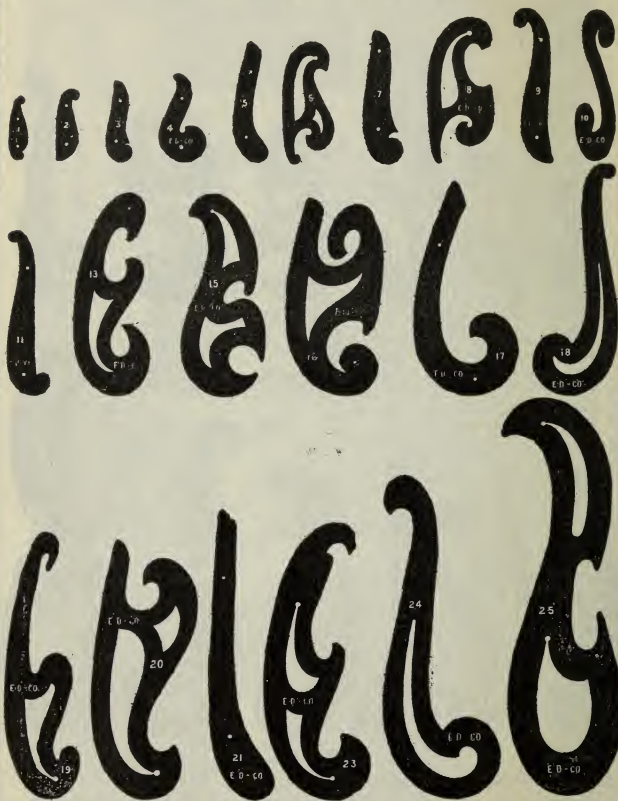 1
2
3
4
E·D-CO
5
6
7
8
E·D-CO
9
10
E·D-CO
11
13
E·D-CO
15
16
17
E·D-CO
18
E·D-CO
E·D-CO
19
E·D-CO
20
21
E·D-CO
E·D-CO
23
24
E·D-CO
25
E·D-CO